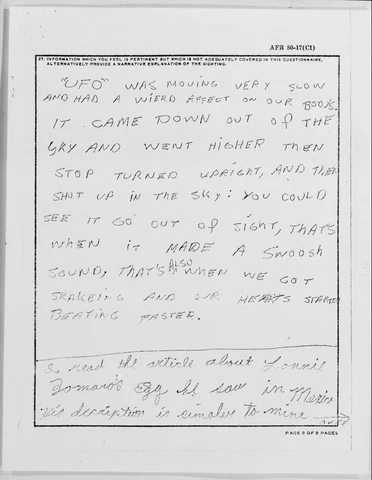 AFR 80-17(C1)
27. INFORMATION WHICH YOU FEEL IS PERTINENT BUT WHICH IS NOT ADEQUATELY COVERED IN THIS QUESTIONNAIRE,
ALTERNATIVELY PROVIDE A NARRATIVE EXPLANATION OF THE SIGHTING.
"UFO" WAS MOVING VERY SLOW
AND HAD A WIERD AFFECT ON OUR BODYS.
IT CAME DOWN OUT OF THE
SKY AND WENT HIGHER THEN
STOP TURNED UPRIGHT, AND THEN
SHOT UP IN THE SKY: YOU COULD
SEE IT GO OUT OF SIGHT, THAT'S
WHEN IT MADE A SWOOSH
SOUND, THAT'S ALSO WHEN WE GOT
SHAKEING AND OUR HEARTS STARTED
BEATING FASTER.
I read the article about Lonnie
Zomaro's egg he saw in
His decription is similer to mine
PAGE 8 OF 8 PAGES